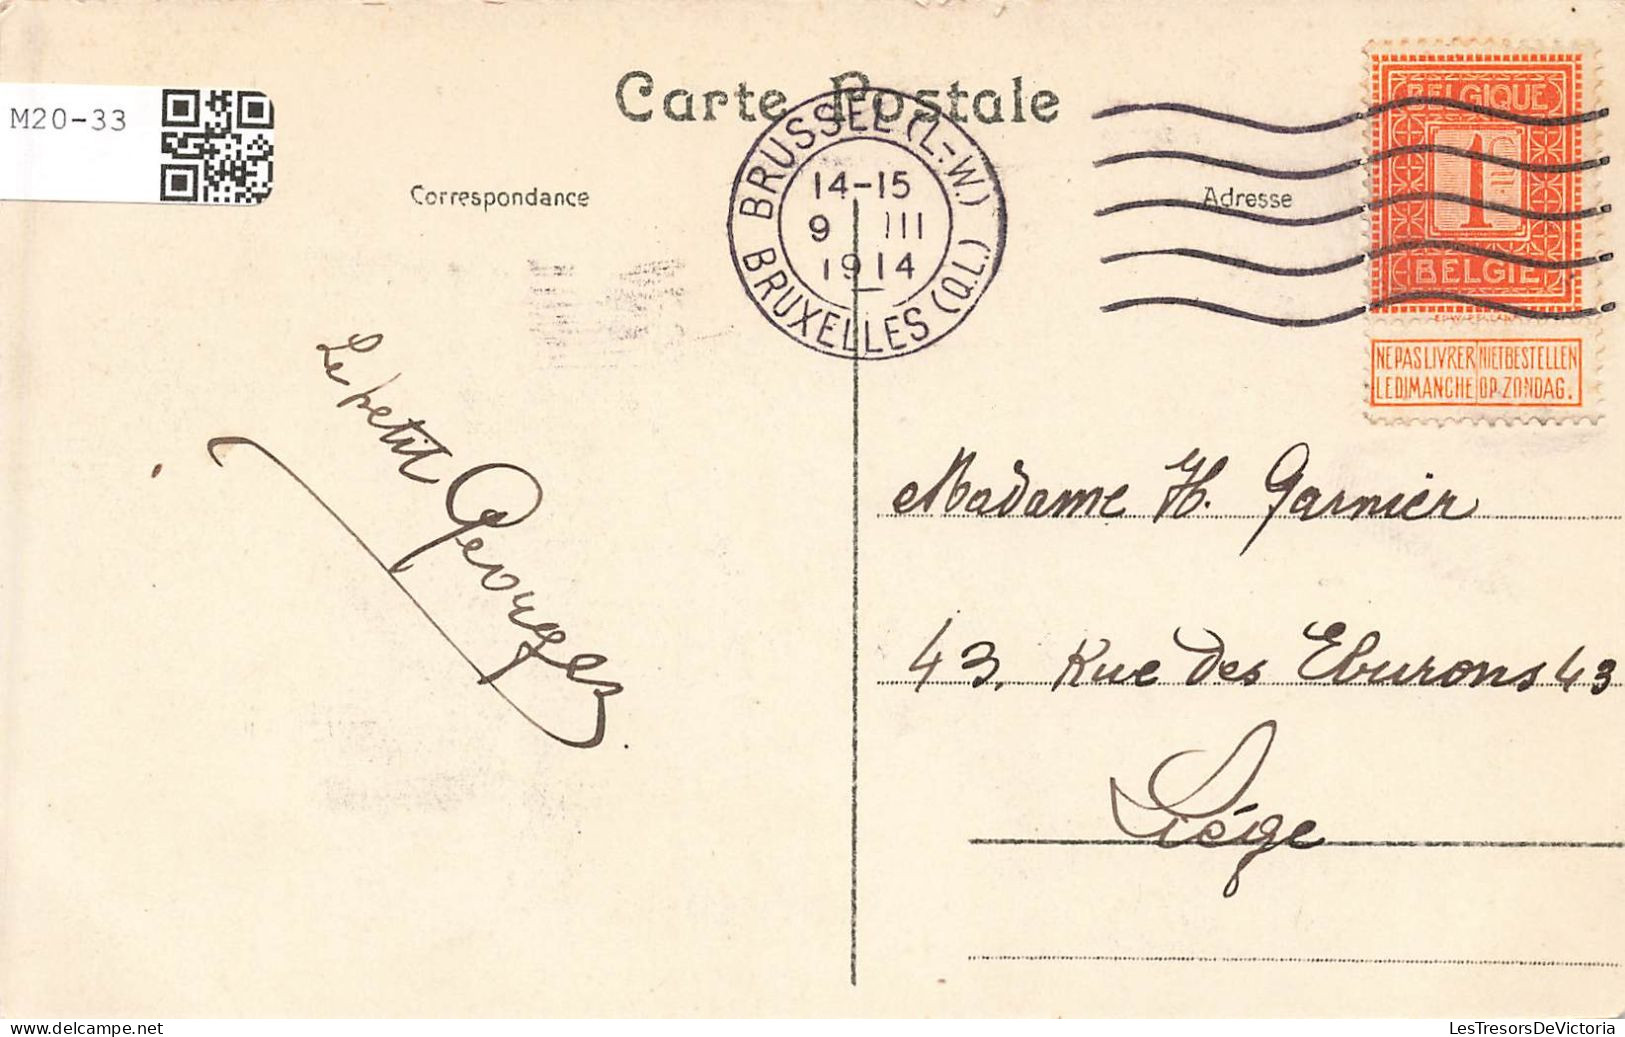 M20-33
Carte Postale
Correspondance
Adresse
BRUSSEL (L.-W.)
14-15
9 III
1914
BRUXELLES (Q.L.)
BELGIQUE
1
BELGIË
NE PAS LIVRER NIET BESTELLEN
LE DIMANCHE OP ZONDAG.
Le petit
Georges
Madame H. Garnier
43, Rue des Eburons 43
Liége
LesTresorsDeVictoria.com